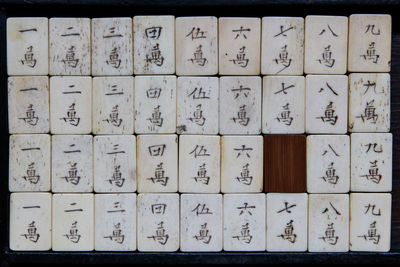 一萬 二萬 三萬 四萬 伍萬 六萬 七萬 八萬 九萬
一萬 二萬 三萬 四萬 伍萬 六萬 七萬 八萬 九萬
一萬 二萬 三萬 四萬 伍萬 六萬 八萬 九萬
一萬 二萬 三萬 四萬 伍萬 六萬 七萬 八萬 九萬